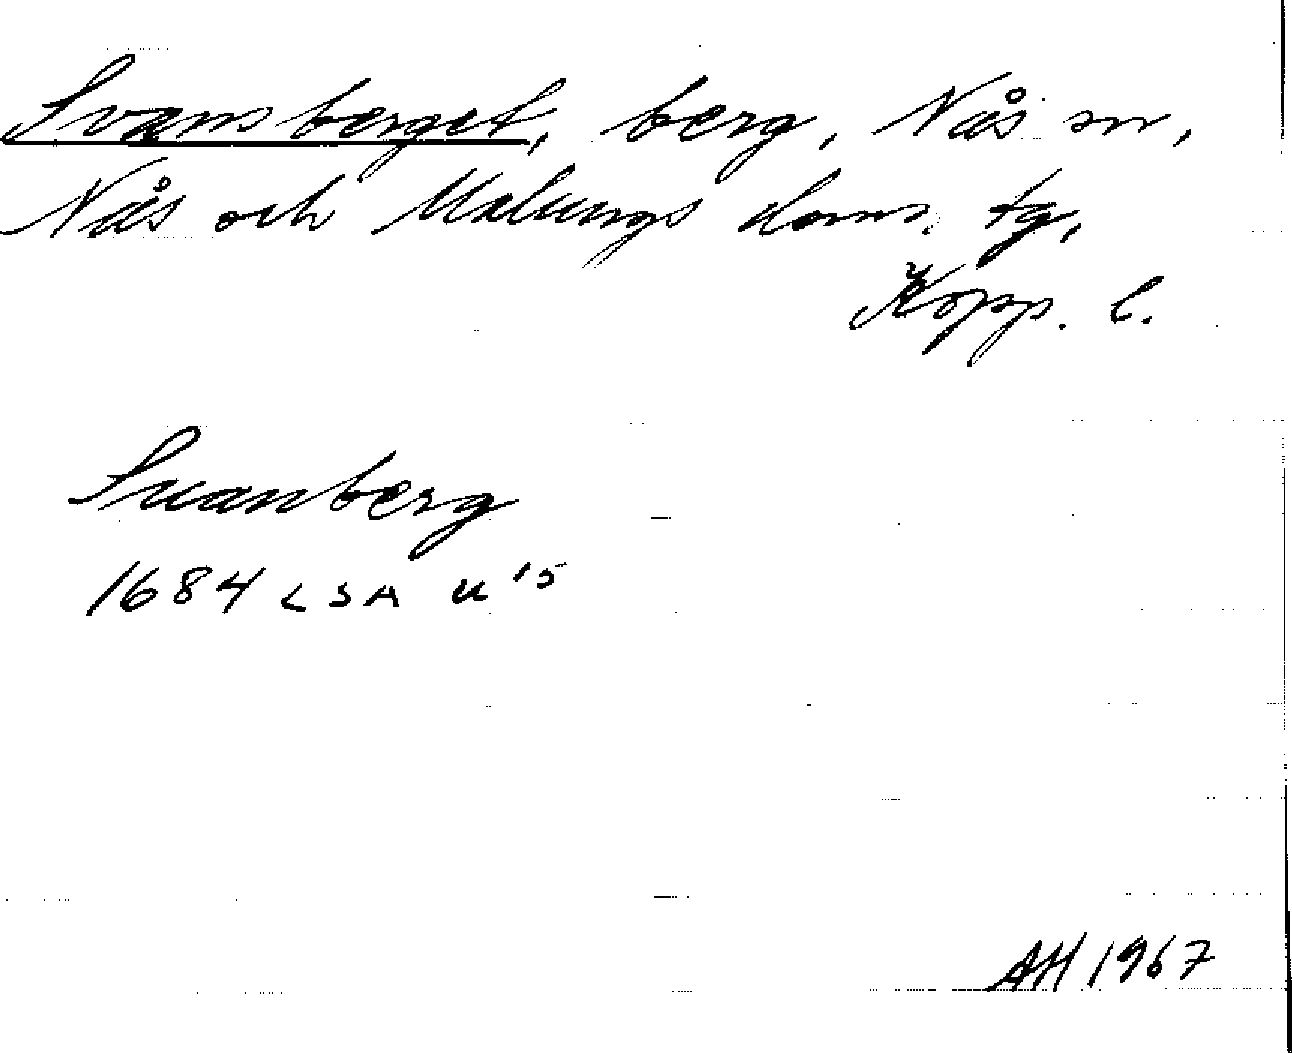 Svansberget, berg, Nås sn,
Nås och Malungs doms. tg,
Kopp. l.
Suanberg
1684 LSA U 15
AH 1967